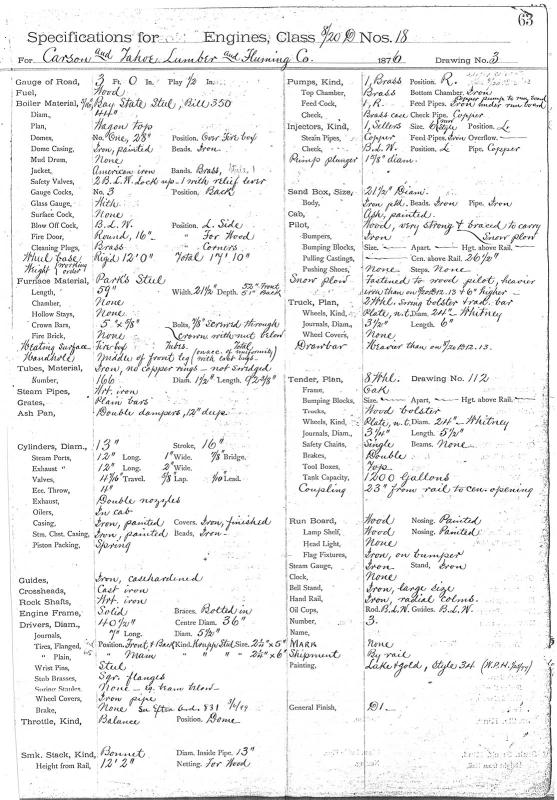 63
Specifications for Engines, Class 8/20 D Nos. 18
For Carson and Tahoe Lumber and Fluming Co. 1876 Drawing No. 3
Gauge of Road, 3 Ft. 0 In. Play 1/2 In.
Fuel, Wood
Boiler Material, Bay State Steel, Bill 350
Diam., 44"
Plan, Wagon top
Domes, One, 28" Position. Over Fire box
Dome Casing, Iron, painted Beads. Iron
Mud Drum, None
Jacket, American iron Bands. Brass,
Safety Valves, 2 B.L.W. Lock up - 1 with relief lever
Gauge Cocks, No. 3 Position, Back
Glass Gauge, With
Surface Cock, None
Blow Off Cock, B.L.W. Position. L. Side
Fire Door, Round, 16" " For Wood
Cleaning Plugs, Brass " Corners
Wheel base Rigid 12'0" Total 17'10"
Weight (working order)
Furnace Material, Park's Steel
Length, 59" Width. 21 1/2" Depth. 52" Front 51" Back
Chamber, None
Hollow Stays, None
Crown Bars, 5" x 5/8" Bolts, 7/8" Screwed through
Fire Brick, None crown with nut below
Heating Surface Fire box Tubes. Total
Handhole, Middle of front leg (on acc. of uniformity with last engs.
Tubes, Material, Iron, no copper rings - not swidged
Number, 166 Diam. 1 1/2" Length.
Steam Pipes, Wrt. iron
Grates, Plain bars
Ash Pan, Double dampers, 12" deep
Cylinders, Diam., 13" Stroke, 16"
Steam Ports, 12" Long. 1" Wide. 7/8" Bridge.
Exhaust " 12" Long. 2" Wide.
Valves, 4 1/16" Travel. 5/8" Lap. 1/40" Lead.
Ecc. Throw, 4"
Exhaust, Double nozzles
Oilers, In cab
Casing, Iron, painted Covers. Iron, finished
Stm. Chst. Casing, Iron, painted Beads, Iron
Piston Packing, Spring
Guides, Iron, casehardened
Crossheads, Cast iron
Rock Shafts, Wrt. iron
Engine Frame, Solid Braces. Bolted in
Drivers, Diam., 40 1/2" Centre Diam. 36"
Journals, 7" Long. Diam. 5 1/2"
Tires, Flanged, Position. Front & Back Kind. Krupp Steel Size. 2 1/4" x 5"
" Plain, " Main " " " " 2 1/4" x 6"
Wrist Pins, Steel
Stub Brasses, Sqr. flanges
Wheel Covers, Iron pipe
Brake, None
Throttle, Kind, Balance Position. Dome
Smk. Stack, Kind, Bonnet Diam. Inside Pipe. 13"
Height from Rail, 12'2" Netting. For Wood
Pumps, Kind, 1, Brass Position. R.
Top Chamber, Brass Bottom Chamber. Iron
Feed Cock, 1, R. Feed Pipes. Copper pump to run board Iron under run board
Check, Brass case Check Pipe. Copper
Injectors, Kind, 1, Sellers Size. Position. L.
Steam Pipes, Copper Feed Pipes. Iron Overflow.
Check, B.L.W. Position, L Pipe, Copper
Pump plunger 1 5/8" diam.
Sand Box, Size, 21 1/2" Diam.
Body, Iron ptd. Beads. Iron Pipe. Iron
Cab, Ash, painted.
Pilot, Wood, very strong & braced to carry
Bumpers, Iron Snow plow
Bumping Blocks, Size. Apart. Hgt. above Rail.
Pulling Castings, Cen. above Rail. 26 1/2"
Pushing Shoes, None Steps. None
Snow plow fastened to wood pilot, heavier
Truck, Plan, 2 Whl. Swing bolster trad. bar
Wheels, Kind, Plate, n.t. Diam. 24" - Whitney
Journals, Diam., 3 1/2" Length. 6"
Wheel Covers, None
Drawbar Heavier than on
Tender, Plan, 8 Whl. Drawing No. 112
Frame, Oak
Bumping Blocks, Size. Apart. Hgt. above Rail.
Trucks, Wood bolster
Wheels, Kind, Plate, n.t. Diam. 24" - Whitney
Journals, Diam., 3 1/4" Length. 5 1/2"
Safety Chains, Single Beams. None
Brakes, Double
Tool Boxes, Top
Tank Capacity, 1200 Gallons
Coupling 23" from rail to cen. opening
Run Board, Wood Nosing. Painted
Lamp Shelf, Wood Nosing. Painted
Head Light, None
Flag Fixtures, Iron, on bumper
Steam Gauge, Iron Stand, Iron
Clock, None
Bell Stand, Iron, large size
Hand Rail, Iron, radial colmns.
Oil Cups, Rod. B.L.W. Guides. B.L.W.
Number, 3.
Name,
Mark None
Shipment By rail
Painting, Lake & gold, Style 34
General Finish, D1.